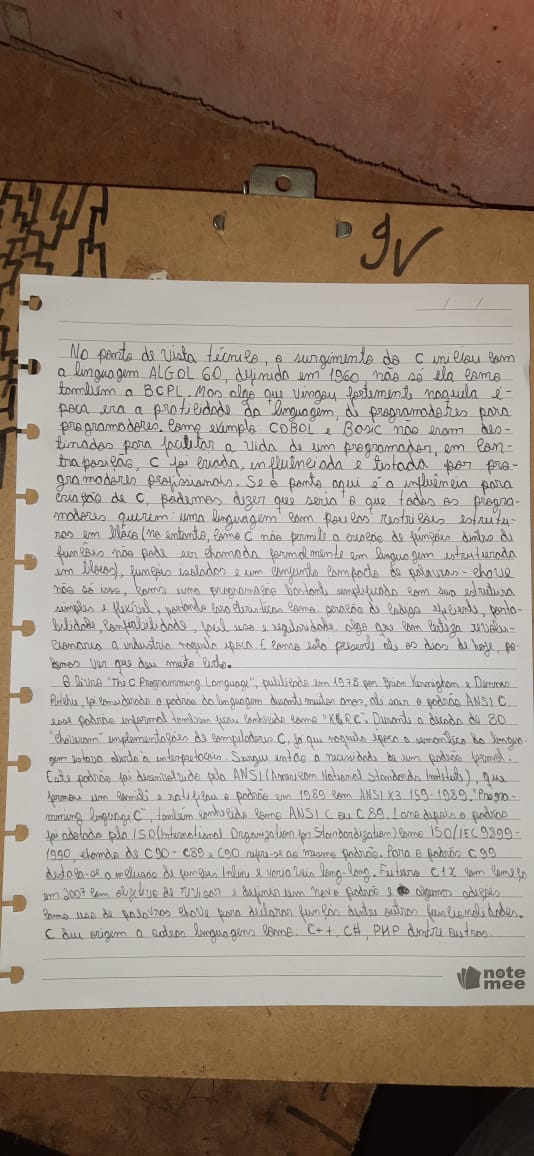 gv
/ /
No ponto de vista técnico, o surgimento do C iniciou com
a linguagem ALGOL 60, definida em 1960 não só ela como
também a BCPL. Mas algo que vingou fortemente naquela é-
poca era a praticidade da linguagem, de programadores para
programadores. Como exemplo COBOL e BASIC não eram des-
tinados para facilitar a vida de um programador, em con-
traposição, C foi criada, influênciada e testada por pro-
gramadores profissionais. Se o ponto aqui é a influência para
criação de C, podemos dizer que seria o que todos os progra-
madores querem: uma linguagem com poucas restrições estrutu-
ras em bloco (no entanto, como C não permite a criação de funções dentro de
funções não pode ser chamada formalmente em linguagem estruturada
em blocos), funções isoladas e um conjunto compacto de palavras-chave
não só isso, como uma programação bastante simplificada com sua estrutura
simples e flexível, portando características como: geração de código eficiente, porta-
bilidade, confiabilidade, fácil uso e regularidade, algo que com certeza revolu-
cionaria a indústria naquela época. E como está presente até os dias de hoje, po-
demos ver que deu muito certo.
O livro "The C Programming Language", publicado em 1978 por Brian Kernighan e Dennis
Ritchie, foi considerado o padrão da linguagem durante muitos anos, até sair o padrão ANSI C
esse padrão informal também ficou conhecido como "K&R C". Durante a década de 80
"choveram" implementações de compiladores C, já que naquela época a semântica da lingua-
gem estava aberta a interpretações. Surgiu então a necessidade de um padrão formal.
Este padrão foi desenvolvido pela ANSI (American National Standards Institute), que
formou um comitê e ratificou o padrão em 1989 com ANSI X3.159-1989. "Progra-
mming language C", também conhecido como ANSI C ou C89. 1 ano depois o padrão
foi adotado pela ISO (International Organization for Standardization) como ISO/IEC 9899-
1990, chamado de C90 - C89 e C90 refere-se ao mesmo padrão. Para o padrão C99
dedica-se a melhoria de funções inline e variáveis long-long. Futuro C1X com começo
em 2007 com objetivo de revisar e definir um novo padrão e algumas adições
como uso de palavras chave para declarar função dentre outras funcionalidades.
C deu origem a outras linguagens como: C++, C#, PHP dentre outras.
note
mee